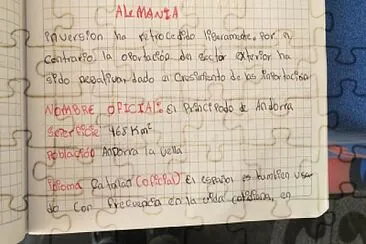 ALEMANIA
inversion ha retrocedido ligeramente, por el
contrario la oportación de sector exterior ha
sido negativa, dado al Crecimiento de las importacion
NOMBRE OFICIAL: El Principado de Andorra
Superficie 468 Km²
Población Andorra la Vella
Idioma Catalan (oficial) El español es tambien usa
do con frecuencia en la vida cotidiana, en